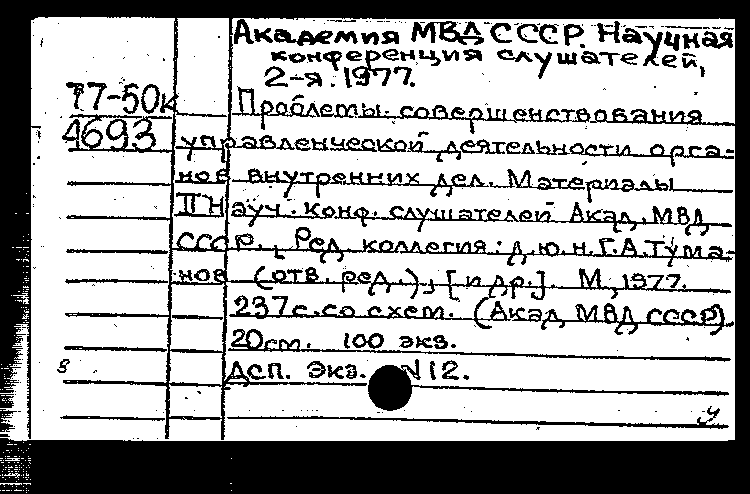 Академия МВД СССР. Научная
конференция слушателей,
2-я. 1977.
77-50к Проблемы совершенствования
4693 управленческой деятельности орга-
нов внутренних дел. Материалы
II Науч. конф. слушателей Акад. МВД
СССР. Ред. коллегия: д.ю.н. Г.А. Тума-
нов (отв. ред.), [и др.]. М., 1977.
237 с. со схем. (Акад. МВД СССР).
20 см. 100 экз.
8 Дсп. Экз. N 12.
у